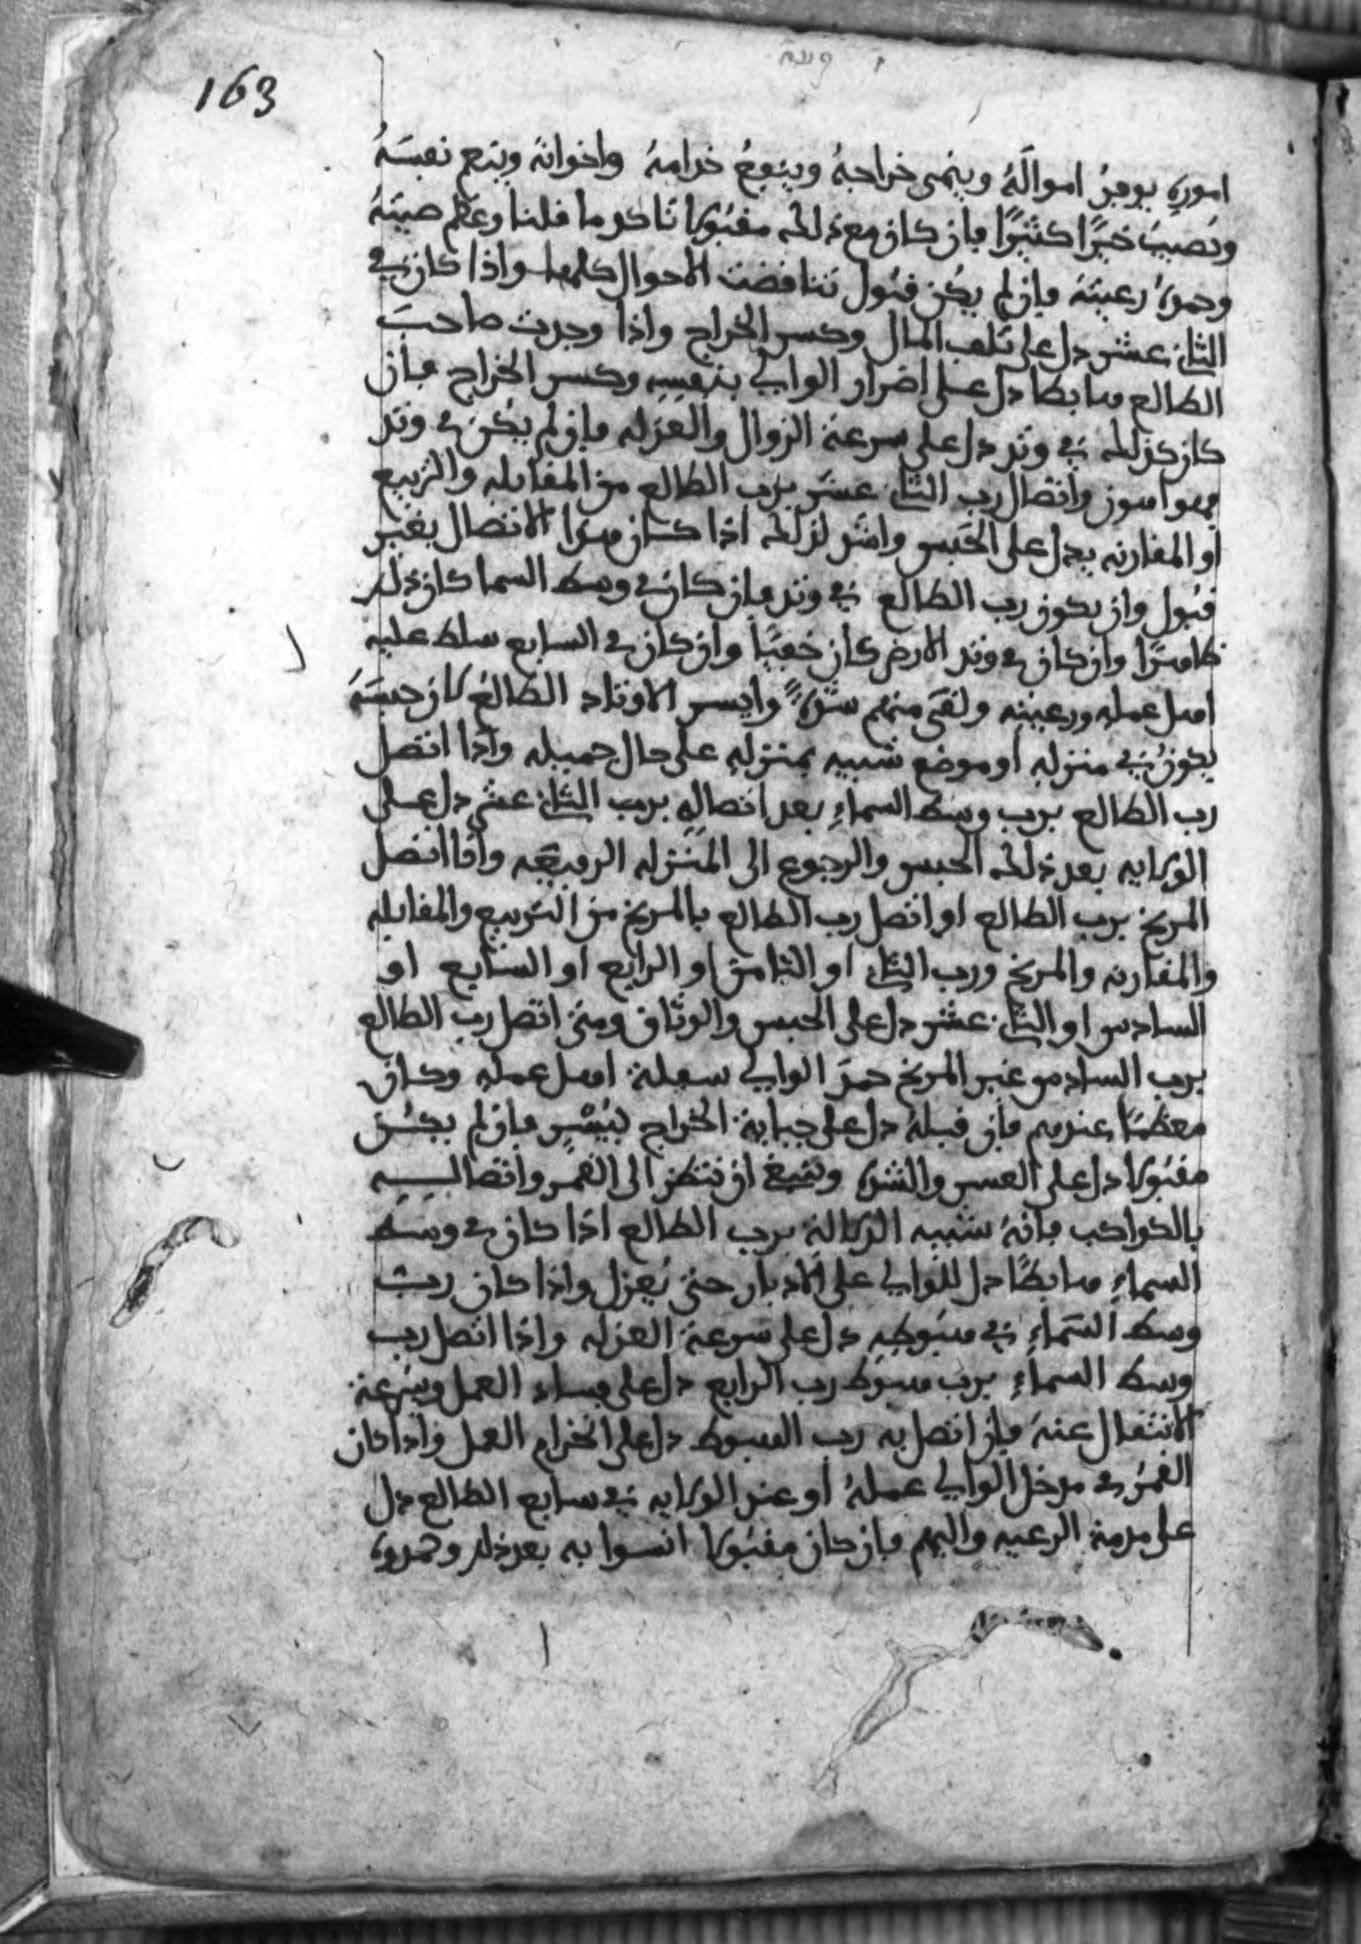 163
اموره يوفر امواله وينمي خراجه وينفع خدامه واخوانه وينعم نفسه
ونصيب خيرا كثيرا فان كان مع ذلك مقبولا تاكد ما قلنا وعظم صيته
وحمد رعيته فان لم يكن قبول تناقضت الاحوال كلها واذا كان في
الثاني عشر دل على تلف المال وكسر الخراج واذا وجدت صاحب
الطالع هابطا دل على اضرار الوالي بنفسه وكسر الخراج فان
كان كذلك في وتد دل على سرعة الزوال والعزله فان لم يكن في وتد
فهو اهون واتصال رب الثاني عشر برب الطالع من المقابله والتربيع
او المقارنه يدل على الحبس واشد لذلك اذا كان هذا الاتصال بغير
قبول وان يكون رب الطالع في وتد فان كان في وسط السما كان ذلك
ظاهرا وان كان في وتد الارض كان خفيا وان كان في السابع سلط عليه
اهل عمله ورعيته ولقي منهم شدة وايسر الاوتاد الطالع لان حبسه
يكون في منزله او موضع شبيه بمنزله على حال جميله واذا اتصل
رب الطالع برب وسط السماء بعد اتصاله برب الثاني عشر دل على
الولايه بعد ذلك الحبس والرجوع الى المنزله الرفيعه واذا اتصل
المريخ برب الطالع او اتصل رب الطالع بالمريخ من التربيع والمقابله
والمقارنه والمريخ ورب الثاني او الثامن او الرابع او السابع او
السادس او الثاني عشر دل على الحبس والوثاق ومتى اتصل رب الطالع
برب السادس عند المريخ حمد الوالي سفلة اهل عمله وكان
معظما عندهم فان قبله دل على جباية الخراج ليسر فان لم يكن
مقبولا دل على العسر والشدة وينبغي ان ننظر الى القمر واتصاله
بالكواكب فانه شبيه الدلالة برب الطالع اذا كان في وسط
السماء هابطا دل للوالي على الادبار حتى يعزل واذا كان رب
وسط السماء في هبوطه دل على سرعة العزله واذا اتصل رب
وسط السماء برب هبوط رب الرابع دل على فساد العمل وسرعة
الانتقال عنه فان اتصل به رب الهبوط دل على انخرام العمل واذا كان
القمر في مدخل الوالي عمله او عند الولايه في سابع الطالع دل
على مدمة الرعيه والهم فان كان مقبولا انسوا به بعد ذلك وحمدوه